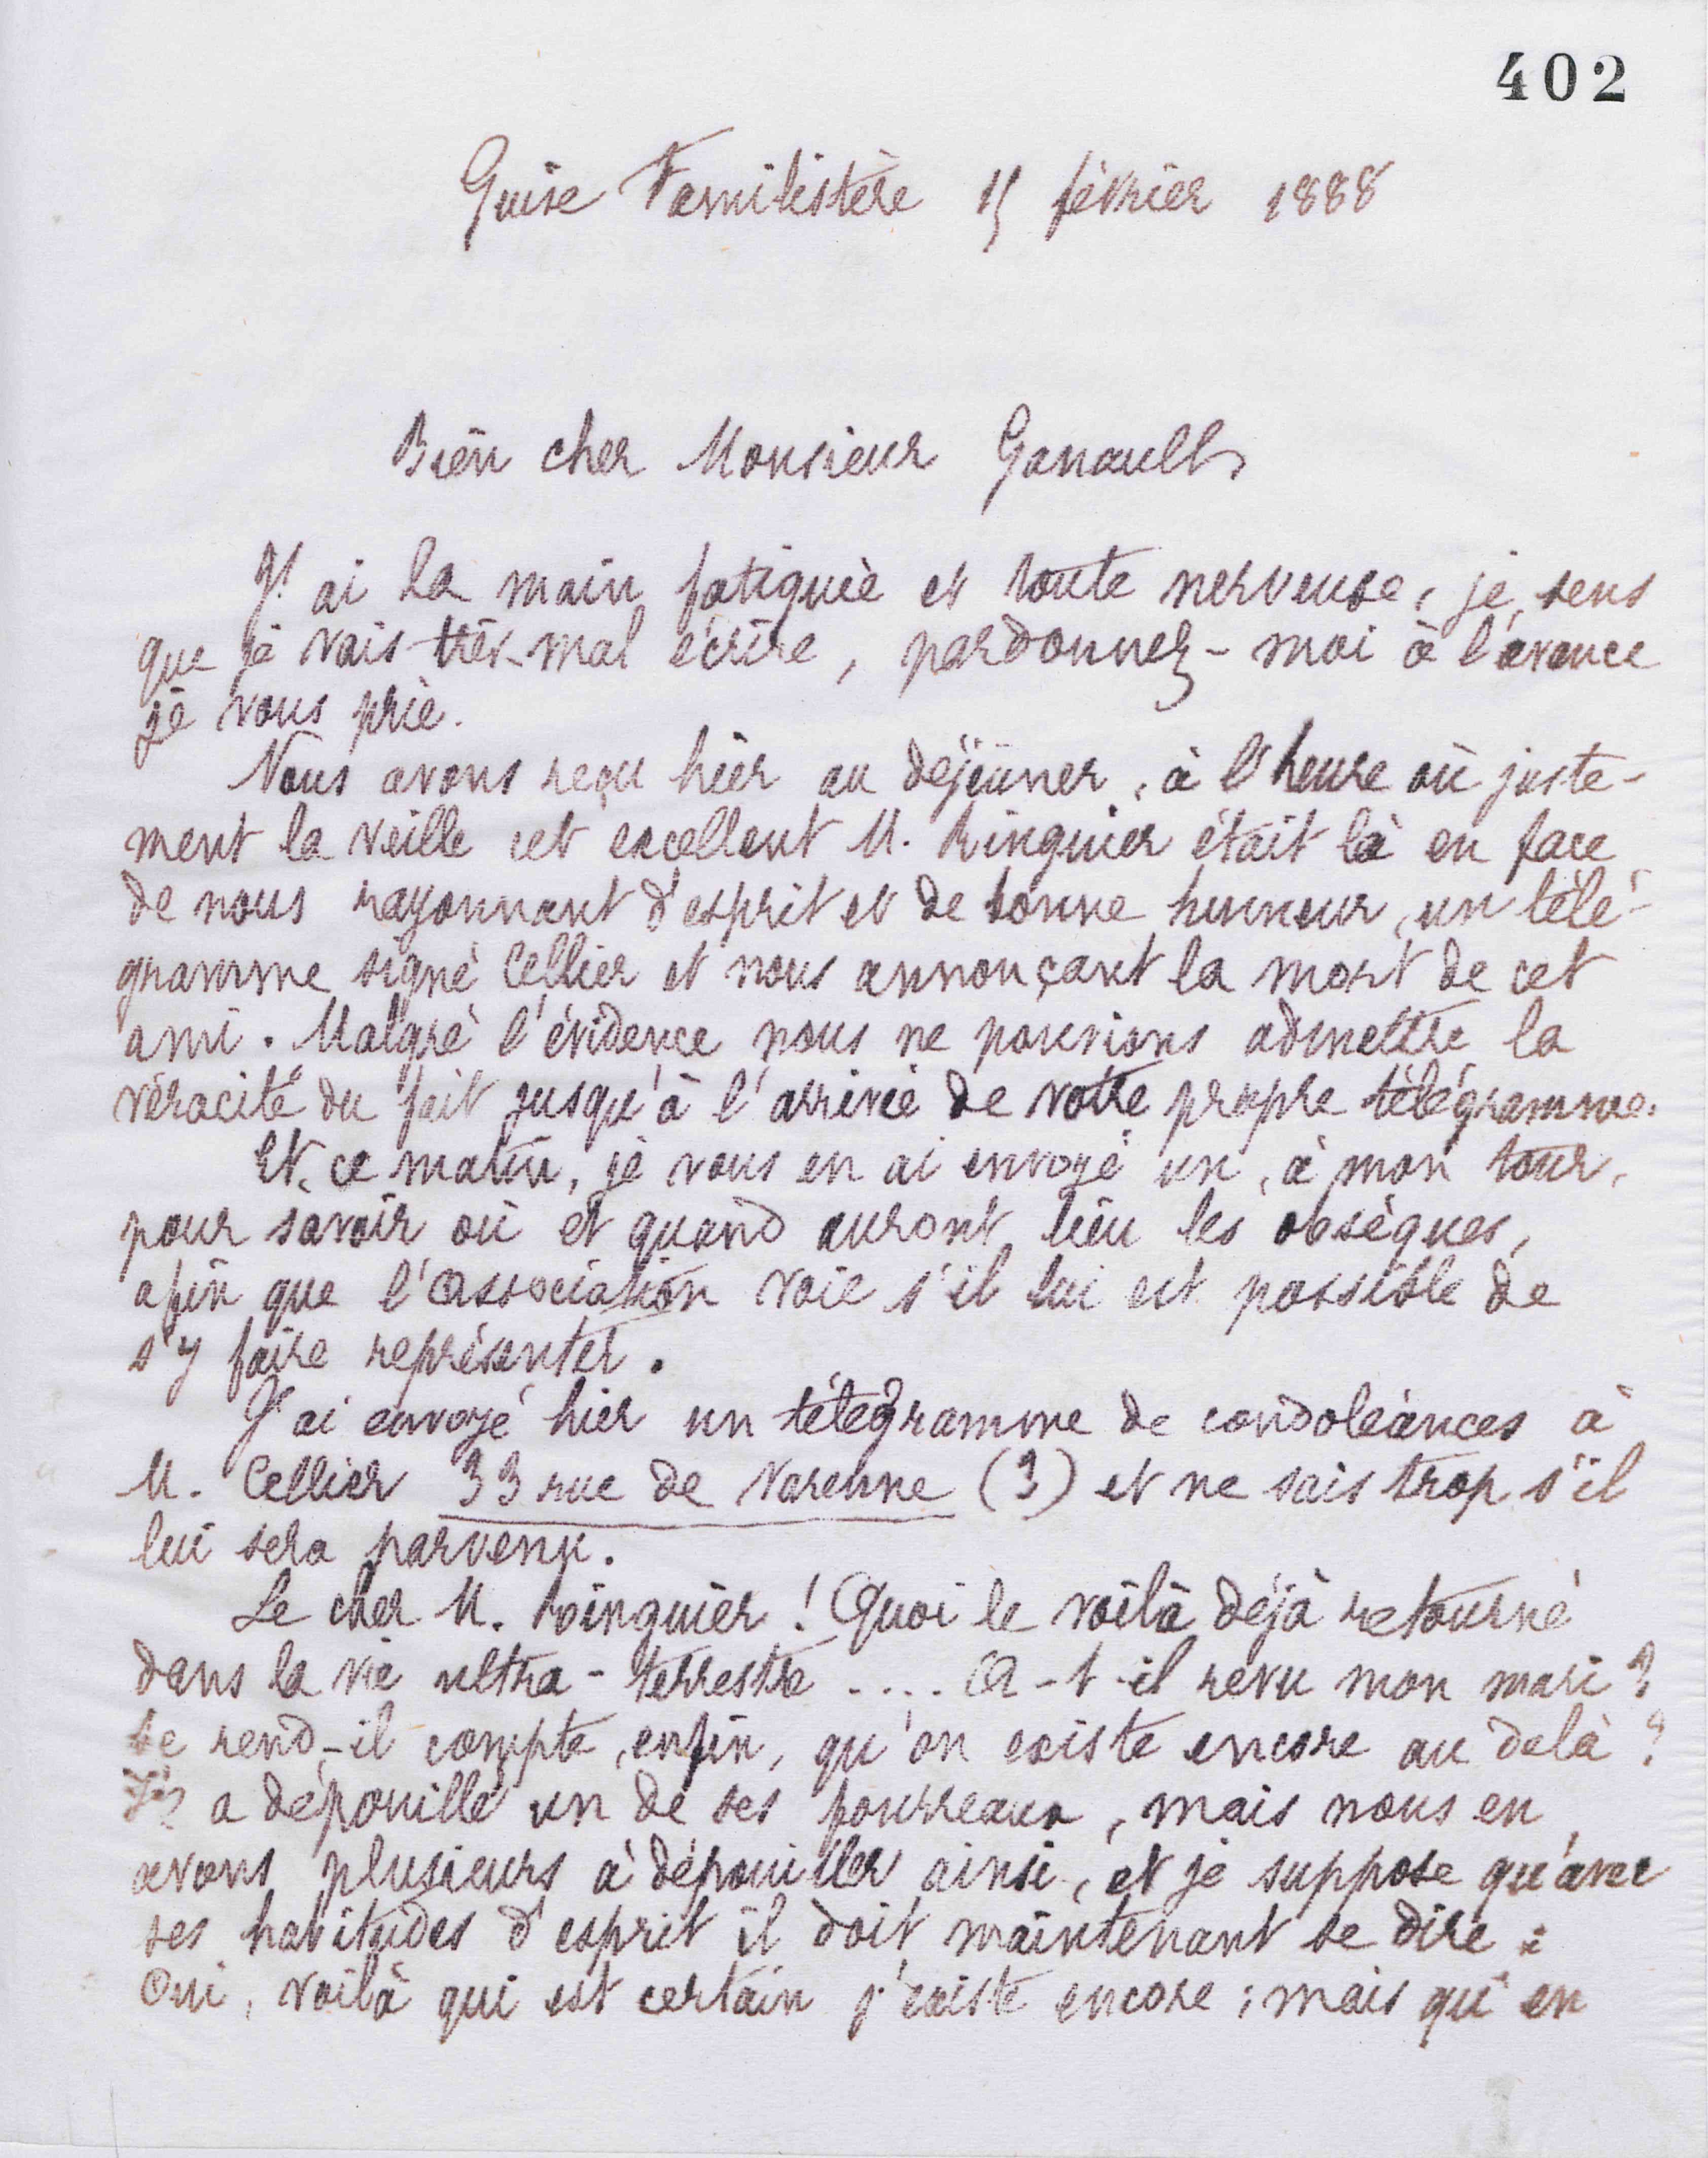 402
Guise Familistère 15 février 1888
Bien cher Monsieur Ganault,
J'ai la main fatiguée et toute nerveuse, je sens
que je vais très-mal écrire, pardonnez-moi à l'avance
je vous prie.
Nous avons reçu hier au déjeûner, à l'heure où juste-
ment la veille cet excellent M. Ringuier était là en face
de nous rayonnant d'esprit et de bonne humeur, un télé-
gramme signé Cellier et nous annonçant la mort de cet
ami. Malgré l'évidence nous ne pouvions admettre la
véracité du fait jusqu'à l'arrivée de votre propre télégramme.
Et, ce matin, je vous en ai envoyé un, à mon tour,
pour savoir où et quand auront lieu les obsèques,
afin que l'Association voie s'il lui est possible de
s'y faire représenter.
J'ai envoyé hier un télégramme de condoléances à
M. Cellier 33 rue de Varenne (?) et ne sais trop s'il
lui sera parvenu.
Le cher M. Ringuier ! Quoi le voilà déjà retourné
dans la vie ultra-terrestre .... A-t-il revu mon mari ?
Se rend-il compte, enfin, qu'on existe encore au delà ?
Il a dépouillé un de ses fourreaux, mais nous en
avons plusieurs à dépouiller ainsi, et je suppose qu'avec
ses habitudes d'esprit il doit maintenant se dire :
Oui, voilà qui est certain j'existe encore ; mais qui en